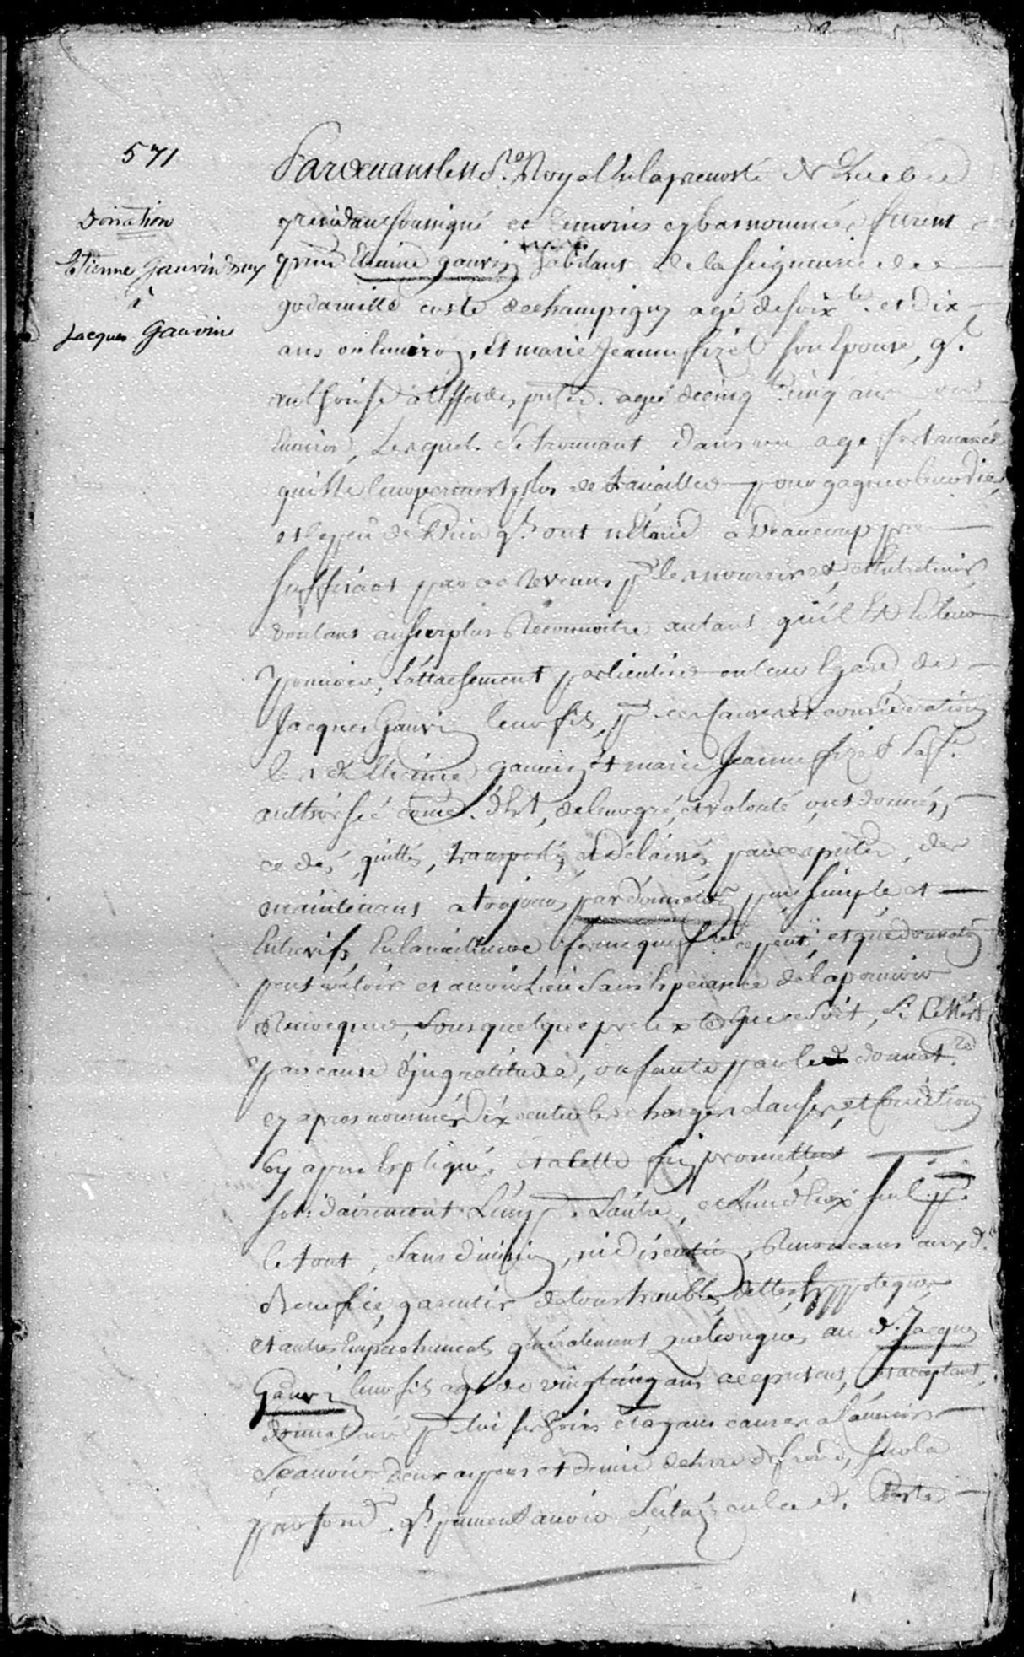 571
Donation
Etienne Gauvin & ux
à
Jacques Gauvin
Pardevant les Nres Royal En la prevosté de Quebec
y residant soussigné et temoins cy bas nommés, furent
pnts Etienne gauvin habitant de la seigneurie de
godarville coste de champigny agé de soixte. et dix
ans ou Environ, Et marie Jeanne fizel son Epouse, q.l
authorise à l'effet des ptes. agée de cinqte cinq ans, ou
Environ, Lesquels se trouvant dans un age fort avancé
qui Ne leur permet plus de travailler pour gagner leur vie,
et le peu de Bien qls ont n'Etant à Beaucoup près
suffisant par ses revenus pr les nourrir et Entretenir
voulant au surplus Reconnoitre autant qu'il Est En leur
pouvoir, L'attachement particulier en leur Egard, de
Jacques Gauvin leur fils, pr ces causes et considerations
les d. Etienne gauvin Et marie Jeanne fizel sa f.
authorisée comme dit Est, de leur gré et volonté, ont donnés,
cedés, quittés, transportés et délaissés par ces presentes, des
maintenant a toujours par donnation pure simple et
Entrevifs, En la meilleure forme que faire ce peut, et que donnation
peut valoir et avoir Lieu sans Esperance de la pouvoir
Revoquer, sous quelque pretexte que ce soit, si ce N'est
par cause d'ingratitude, ou faute par le d. donatre
cy apres nommé d'Executer les charges clauses, et Conditions
cy apres Expliqués, et a cette fin promettent
solidairement L'un pr. L'autre, et L'un d'Eux seul pr.
le tout, sans division, ni discution, Renonçant aux d.
Benefices, garentir de tous troubles, dettes, hypoteques
et autres Empechements generalement quelconques au d. Jacques
Gauvin leur fils agé de vingt cinq ans a ce present, et acceptant,
donnataire pr lui ses hoirs et ayans causes a L'avenir
Sçavoir deux arpens et demie de terre de front, sur la
profond. qls peuvent avoir Scitués en la d. Coste